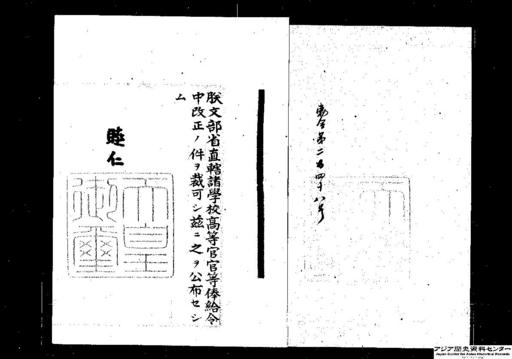 勅令第二百四十八号
朕文部省直轄諸學校高等官官等俸給令
中改正ノ件ヲ裁可シ茲ニ之ヲ公布セシ
ム
睦仁
天皇
御璽
アジア歴史資料センター
Japan Center for Asian Historical Records